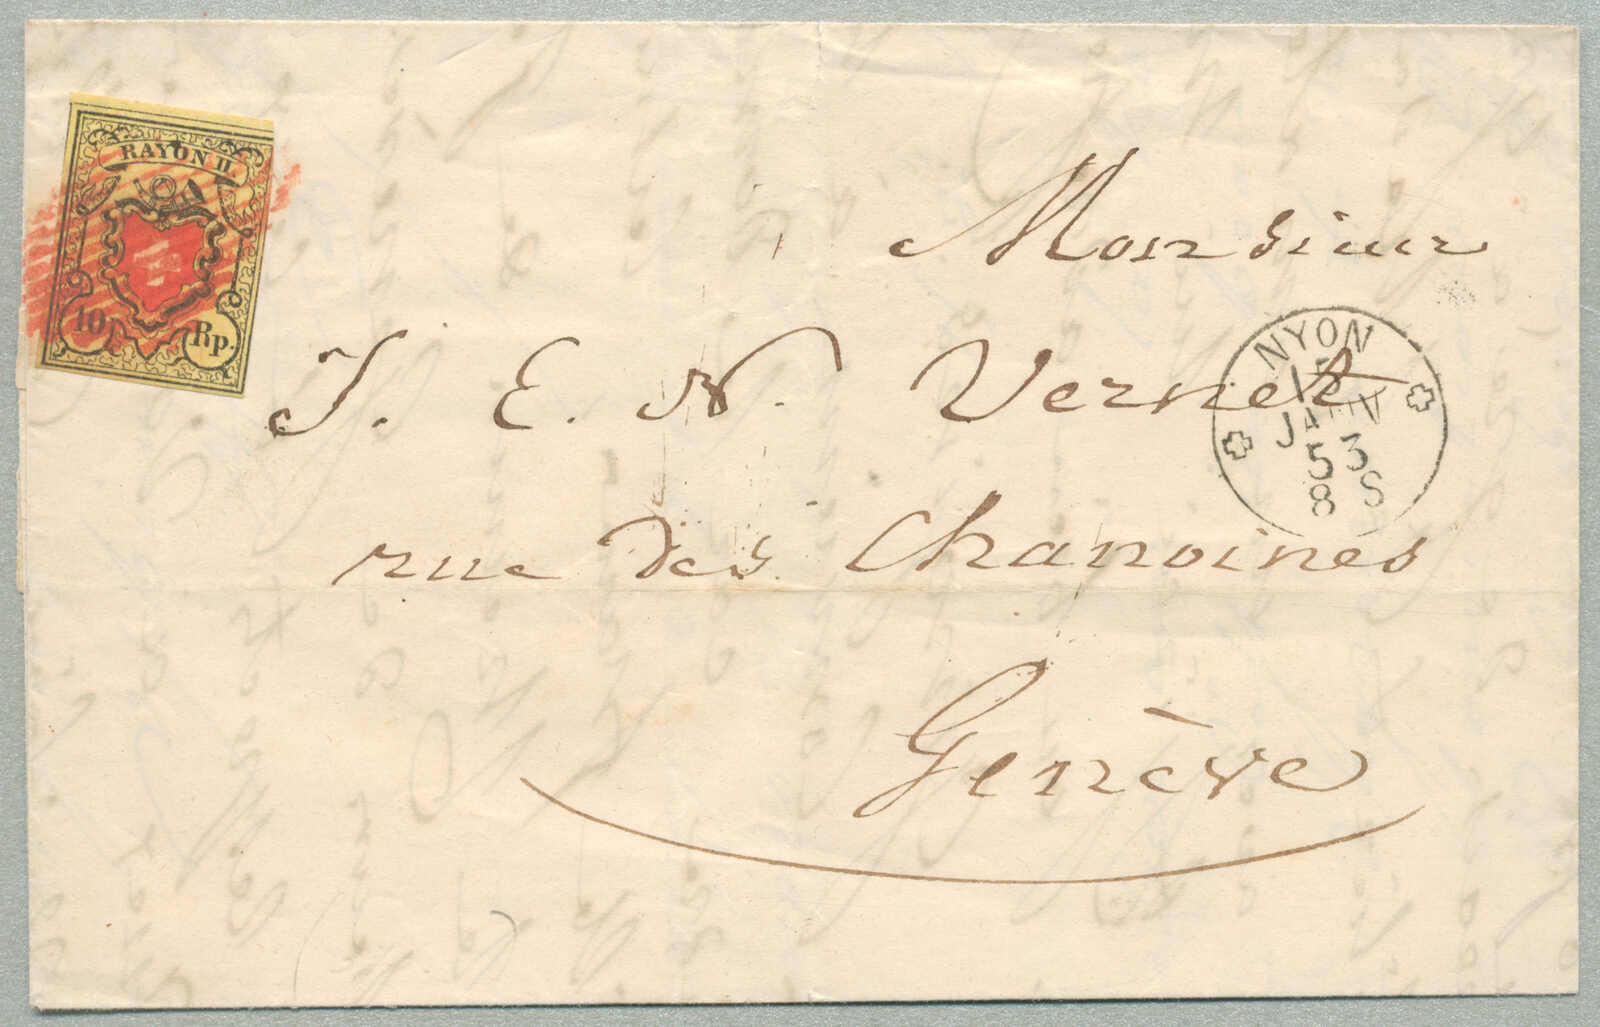 RAYON II
10 Rp.
Monsieur
J. E. N. Vernet
rue des Chanoines
Genève
NYON
JANV
53
8 S